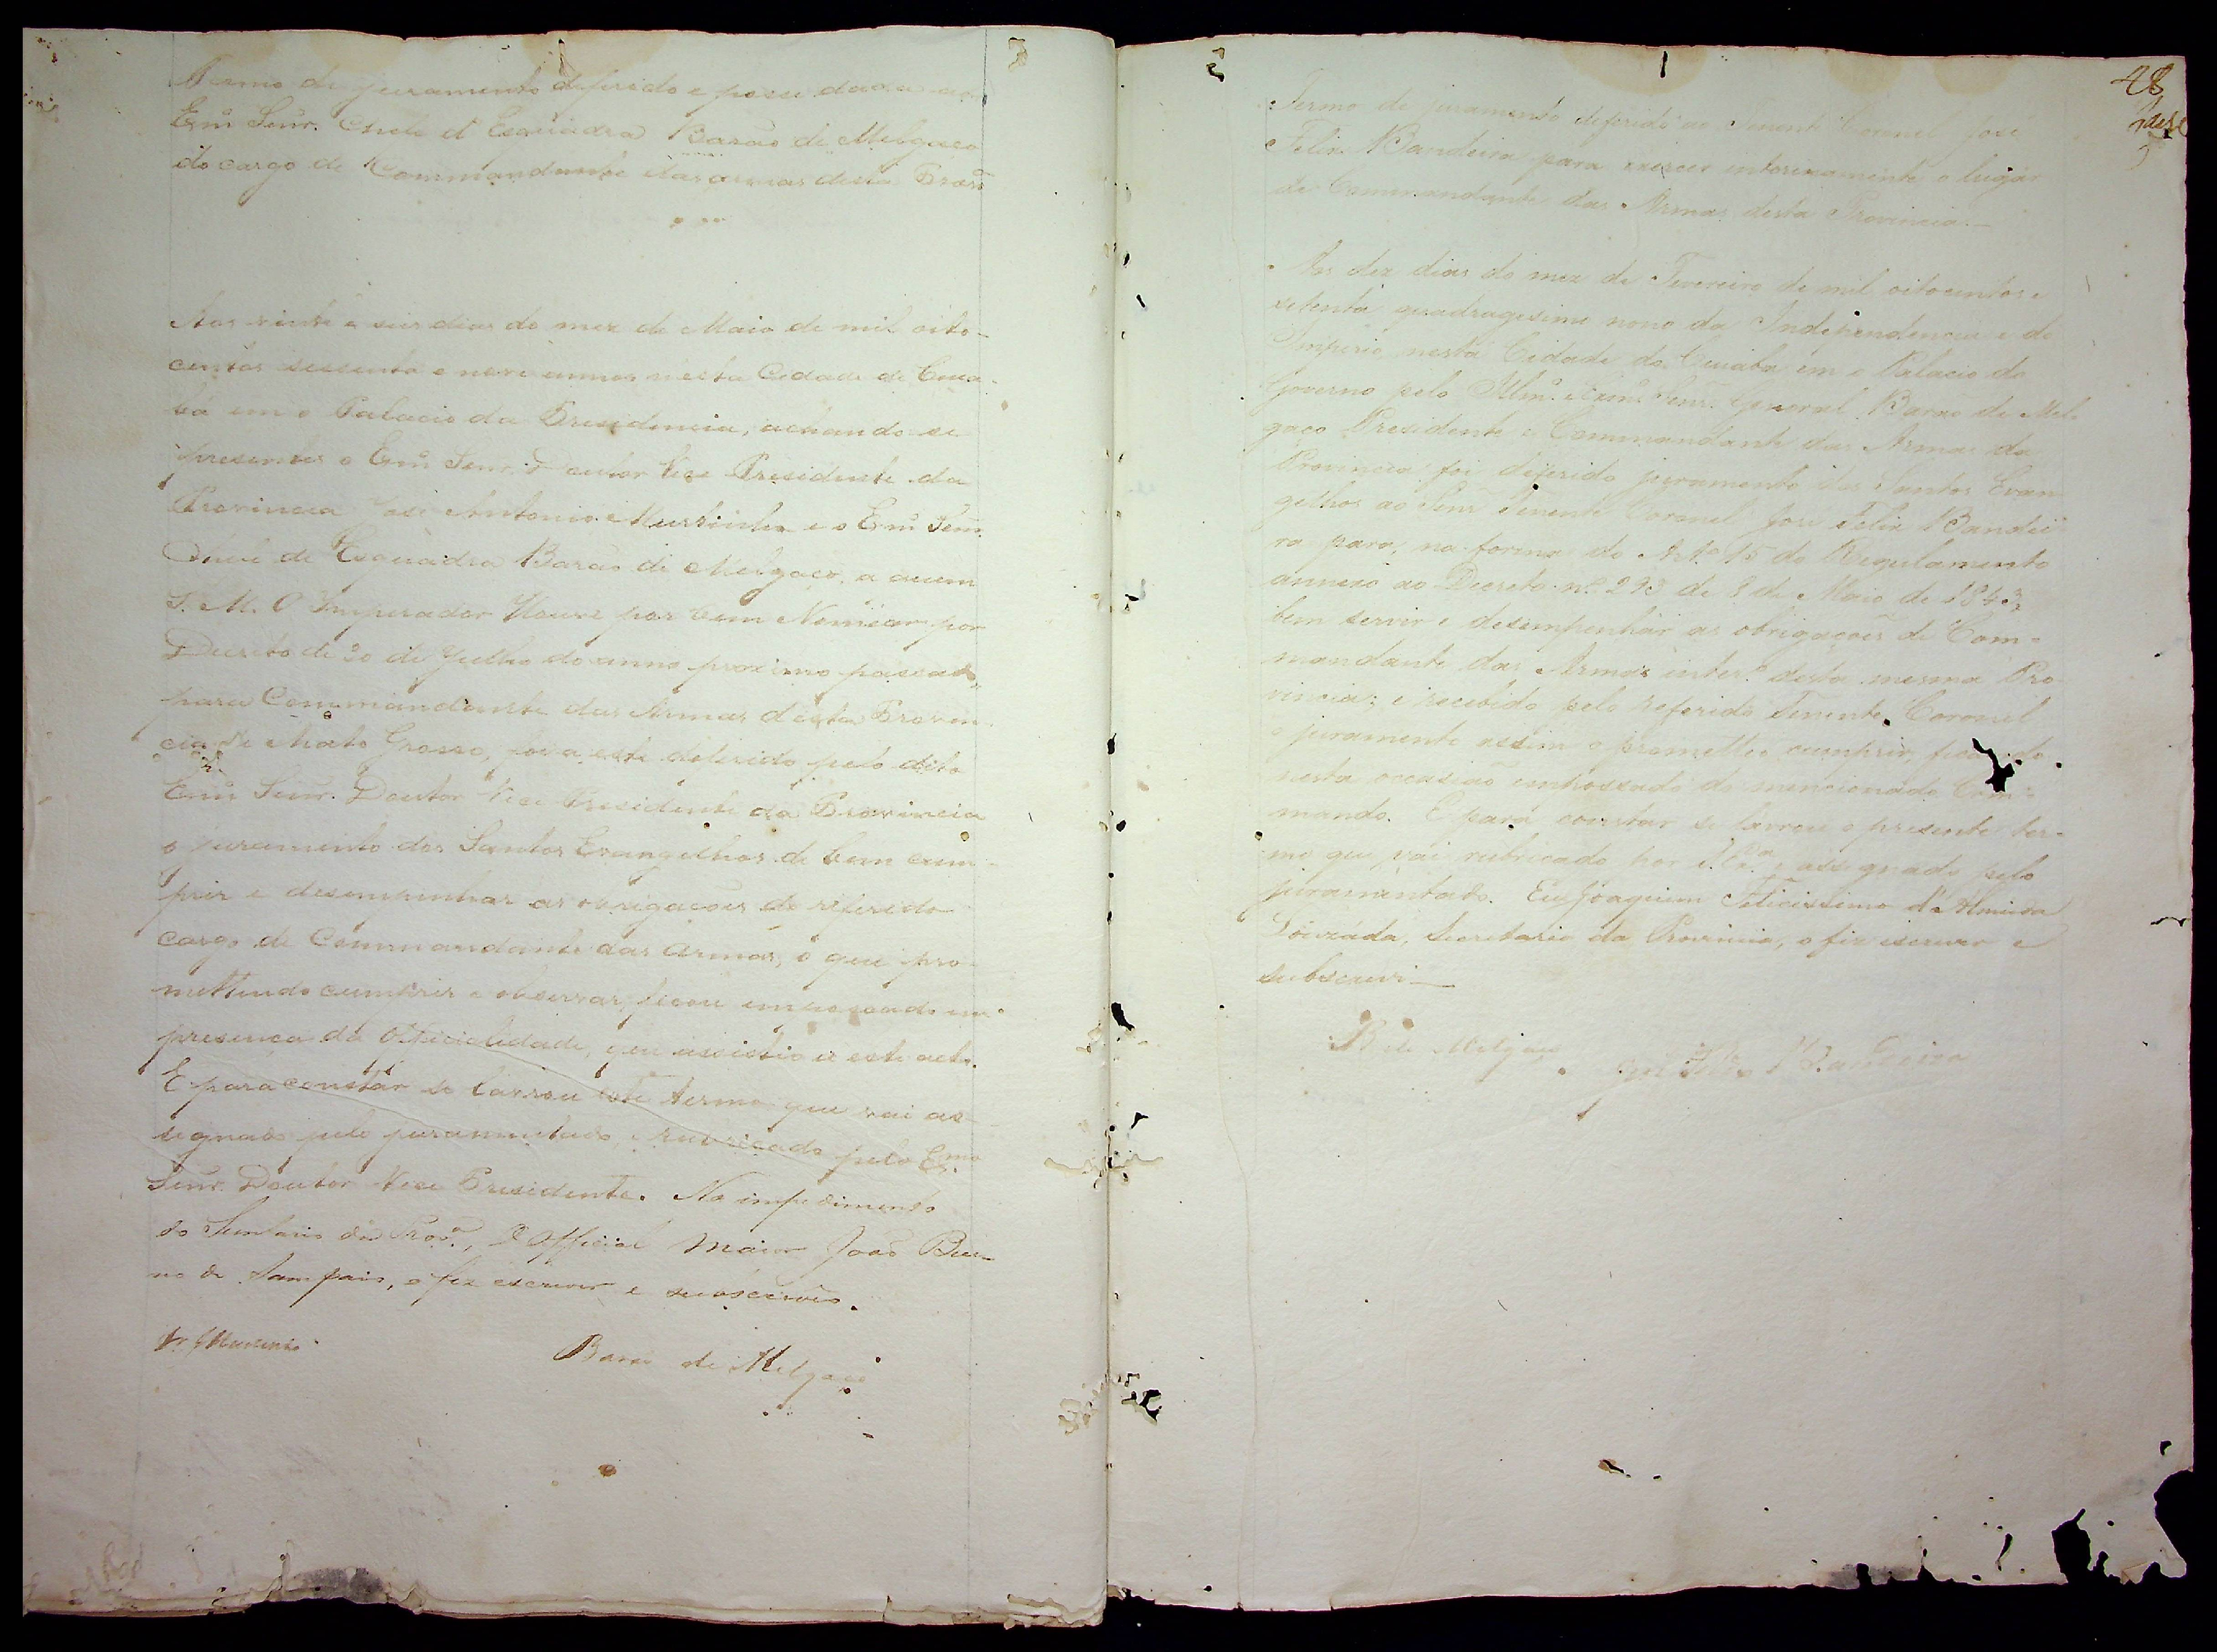 Termo de juramento deferido e posse dada ao
Exmo. Senr. Chefe d'Esquadra Barão de Melgaço
do cargo de Commandante das armas desta Provª
Aos vinte e seis dias do mez de Maio de mil oito-
centos sessenta e nove annos nesta Cidade de Cuia-
bá em o Palacio da Presidencia, achando se
presentes o Exmo. Senr. Doutor Vice Presidente da
Provincia José Antonio Murtinho e o Exmo. Senr.
Chefe de Esquadra Barão de Melgaço, a quem
S. M. O Imperador Houve por bem Nomear por
Decreto de 20 de Julho do anno proximo passado
para Commandante das Armas desta Provin-
cia de Mato Grosso, foi a este deferido pelo dito
Exmo. Senr. Doutor Vice Presidente da Provincia
o juramento dos Santos Evangelhos de bem cum-
prir e desempenhar as obrigações do referido
cargo de Commandante das armas, o que pro-
mettendo cumprir e observar, ficou empossado em
presença da Officialidade, que assistio a este acto.
E para constar se lavrou este termo que vai as-
signado pelo juramentado, e rubricado pelo Exmo.
Senr. Doutor Vice Presidente. No impedimento
do Secretario da Provª., o Official Maior João Bue-
no de Sampaio, o fiz escrever e subscrevo.
Dr. Murtinho
Barão de Melgaço
48
Termo de juramento deferido ao Tenente Coronel José
Felix Bandeira para exercer interinamente o lugar
de Commandante das Armas desta Provincia.—
Aos dez dias do mez de Fevereiro de mil oitocentos e
setenta quadragesimo nono da Independencia e do
Imperio, nesta Cidade do Cuiabá em o Palacio do
Governo pelo Illmo. e Exmo. Senr. General Barão de Mel-
gaço Presidente e Commandante das Armas da
Provincia foi deferido juramento dos Santos Evan-
gelhos ao Senr. Tenente Coronel José Felix Bandei-
ra para, na forma do Art.º 15 do Regulamento
annexo ao Decreto nº 293 de 8 de Maio de 1843,
bem servir e desempenhar as obrigações de Com-
mandante das Armas inter.º desta mesma Pro-
vincia; e recebido pelo referido Tenente Coronel
o juramento assim o prometteo cumprir, ficando
nesta occasião empossado do mencionado Com-
mando. E para constar se lavrou o presente ter-
mo que vai rubricado por S. Exª. e assignado pelo
juramentado. Eu Joaquim Felicissimo d'Almeida
Louzada, Secretario da Provincia, o fiz escrever e
subscrevi—
B. de Melgaço
José Felix Bandeira